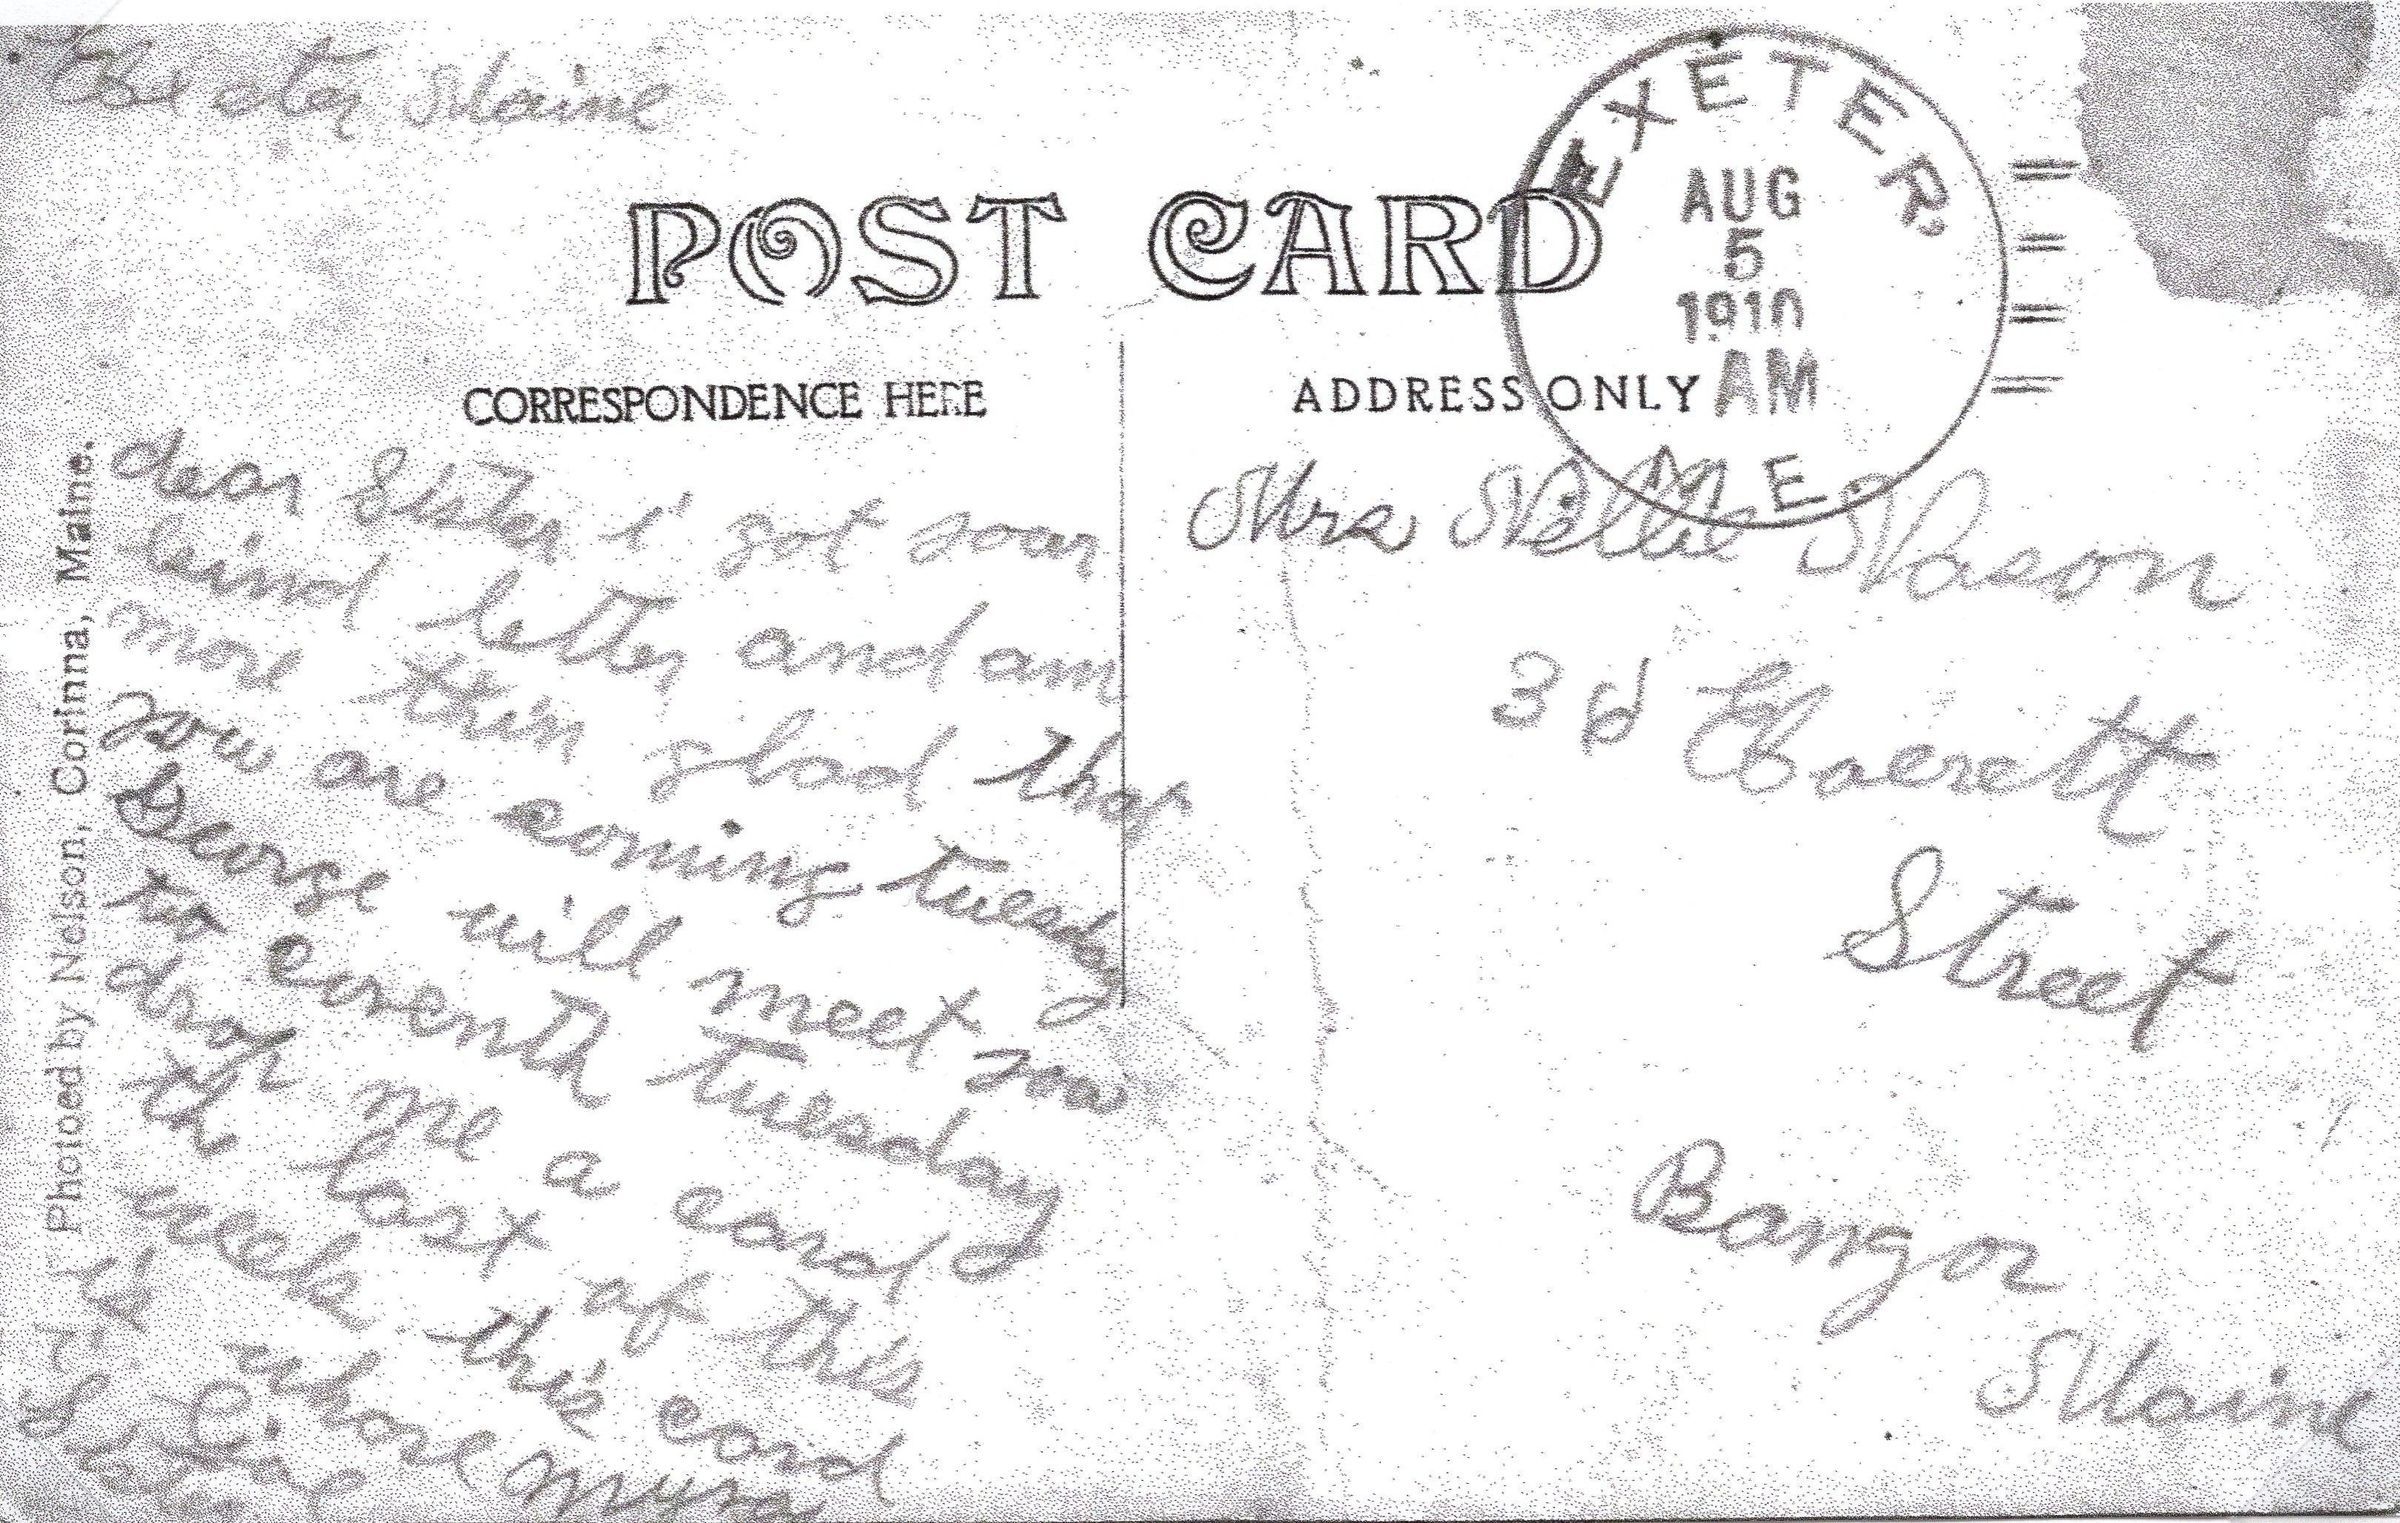 Exeter Maine
POST CARD
EXETER,
AUG
5
1910
AM
ME.
CORRESPONDENCE HERE
ADDRESS ONLY
Photoed by Nelson, Corinna, Maine.
dear Sister i got your
kind letter and am
more then glad that
you are coming tuesday
George will meet you
to corenth tuesday
drop me a card
the last of this
week this card
is where Myra
Mrs Nellie Nason
36 Everett
Street
Bangor
Maine